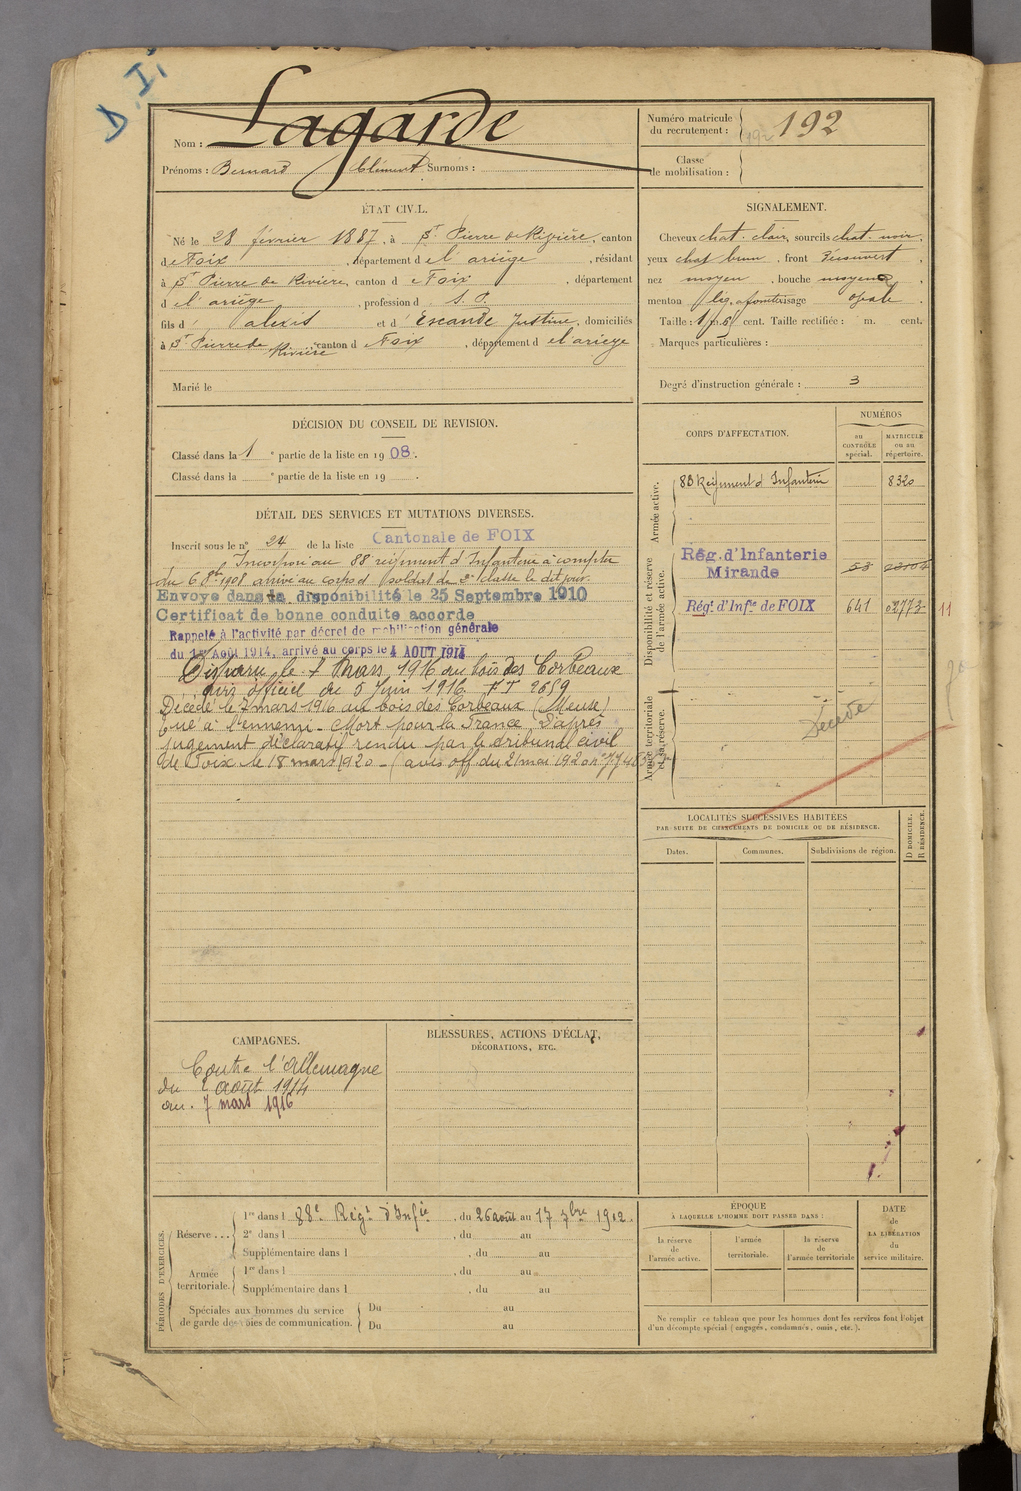 D.I.
Nom : Lagarde
Prénoms : Bernard Clément Surnoms :
Numéro matricule du recrutement : 192
Classe de mobilisation :
ÉTAT CIVIL.
Né le 28 février 1887, à St Pierre de Rivière, canton
de Foix, département de l'ariège, résidant
à St Pierre de Riviere, canton de Foix, département
de l'ariège, profession de S. P.
fils d'alexis et d'Escande Justine, domiciliés
à St Pierre de Rivière canton de Foix, département de l'ariege
Marié le
SIGNALEMENT.
Cheveux chat. clair, sourcils chat. noir,
yeux chat brun, front
nez moyen, bouche moyenne,
menton visage ovale.
Taille : 1 m. 6 cent. Taille rectifiée : m. cent.
Marques particulières :
Degré d'instruction générale : 3
DÉCISION DU CONSEIL DE REVISION.
Classé dans la 1e partie de la liste en 1908.
Classé dans la e partie de la liste en 19 .
CORPS D'AFFECTATION.
NUMÉROS
au CONTRÔLE spécial.
MATRICULE ou au répertoire.
Armée active.
88 Régiment d'Infanterie 8320
Disponibilité et réserve de l'armée active.
Rég. d'Infanterie
Mirande 53
Régt. d'Infie de FOIX 641 02773 11
Armée territoriale et sa réserve.
Décédé
DÉTAIL DES SERVICES ET MUTATIONS DIVERSES.
Inscrit sous le no 24 de la liste Cantonale de FOIX
Incorporé au 88e régiment d'Infanterie à compter
du 6 8bre 1908 arrivé au corps et soldat de 2e classe le dit jour.
Envoyé dans la disponibilité le 25 Septembre 1910
Certificat de bonne conduite accordé
Rappelé à l'activité par décret de mobilisation générale
du 1er Août 1914, arrivé au corps le 4 AOUT 1914
Disparu le 7 Mars 1916 au bois des Corbeaux
avis officiel du 5 Juin 1916. FT 2659
Décédé le 7 mars 1916 au bois des Corbeaux (Meuse)
tué à l'ennemi - Mort pour la France. D'après
jugement déclaratif rendu par le tribunal civil
de Foix le 18 mars 1920 - (avis off. du 21 mai 1920
LOCALITÉS SUCCESSIVES HABITÉES
PAR SUITE DE CHANGEMENTS DE DOMICILE OU DE RÉSIDENCE.
Dates. Communes. Subdivisions de région. D DOMICILE. R RÉSIDENCE.
CAMPAGNES.
Contre l'Allemagne
du 2 août 1914
au 7 mars 1916
BLESSURES, ACTIONS D'ÉCLAT,
DÉCORATIONS, ETC.
PÉRIODES D'EXERCICES.
Réserve ... 1re dans l 88e Régt d'Infie, du 26 août au 17 7bre 1912.
2e dans l , du au
Supplémentaire dans l , du au
Armée territoriale. 1re dans l , du au
Supplémentaire dans l , du au
Spéciales aux hommes du service de garde des voies de communication. Du au
Du au
ÉPOQUE
À LAQUELLE L'HOMME DOIT PASSER DANS :
la réserve de l'armée active.
l'armée territoriale.
la réserve de l'armée territoriale
DATE de LA LIBÉRATION du service militaire.
Ne remplir ce tableau que pour les hommes dont les services font l'objet
d'un décompte spécial (engagés, condamnés, omis, etc.).